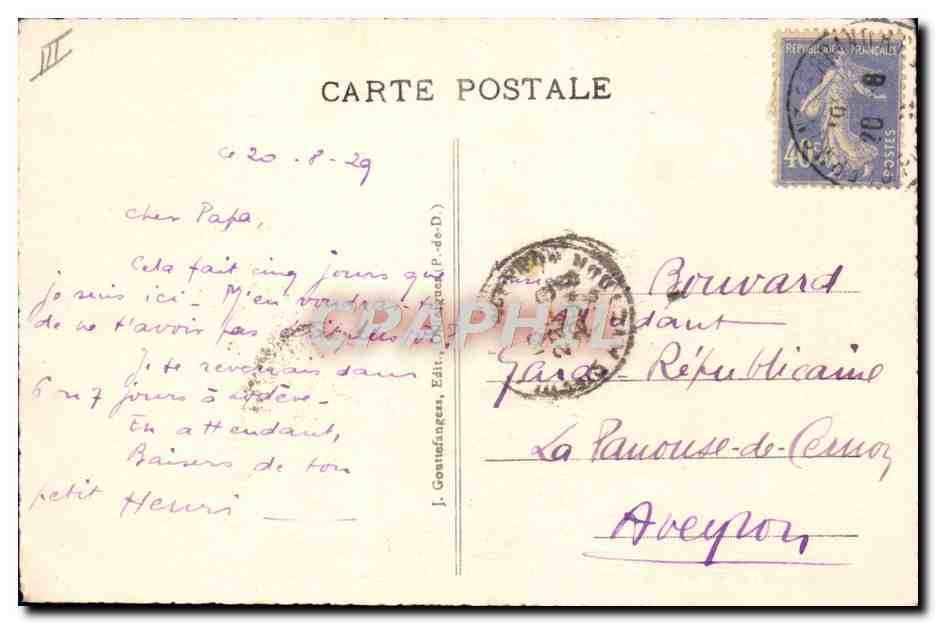 III
CARTE POSTALE
REPUBLIQUE FRANCAISE
40c
POSTES
20 8
Le 20-8-29
Cher Papa,
Cela fait cinq jours que
je suis ici. M'en voudras-tu
de ne t'avoir pas plus tôt?
Je te reverrais dans
6 ou 7 jours à Lodève-
En attendant,
Baisers de ton
petit Henri
J. Gouttefangeas, Edit., (P.-de-D.)
CPAPHIL
Bouvard
dant
Garde Républicaine
La Panouse-de-Cernon
Aveyron